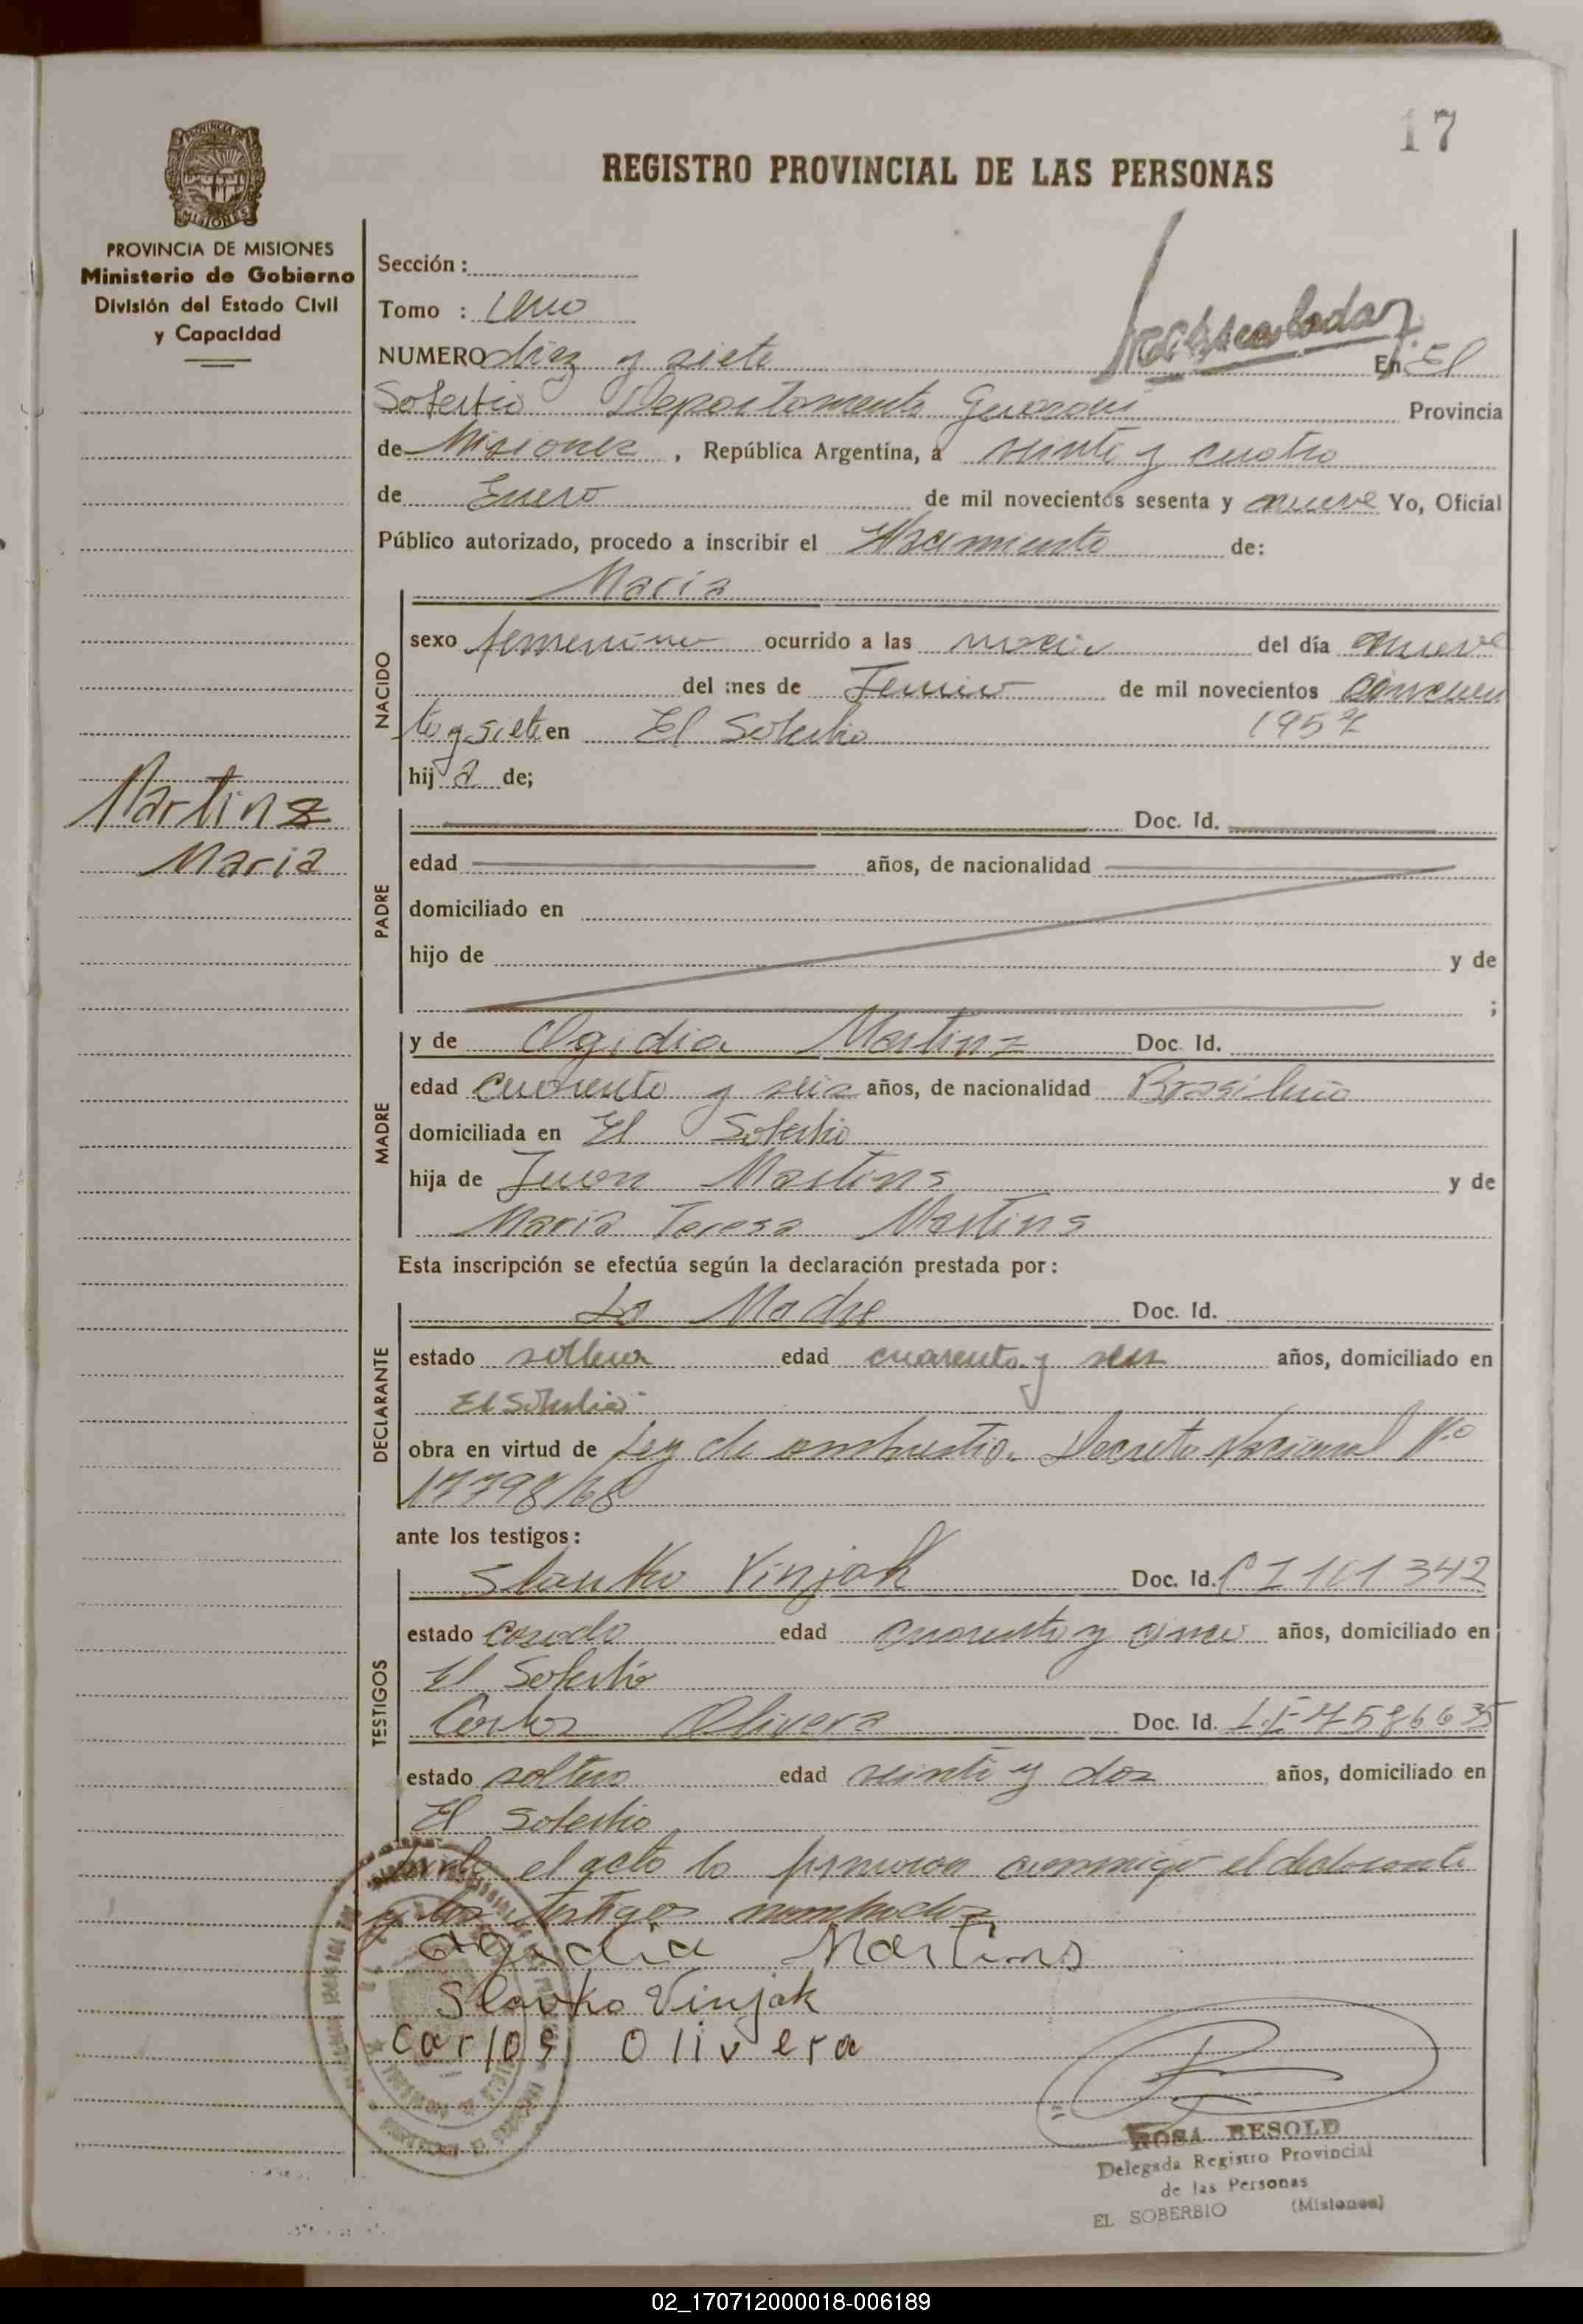 17
REGISTRO PROVINCIAL DE LAS PERSONAS
PROVINCIA DE MISIONES
Ministerio de Gobierno
División del Estado Civil
y Capacidad
Martins
Maria
Sección :
Tomo : Uno
NUMERO diez y siete En El
Soberbio Departamento Guaraní Provincia
de Misiones , República Argentina, a veinte y cuatro
de Enero de mil novecientos sesenta y nueve Yo, Oficial
Público autorizado, procedo a inscribir el Nacimiento de:
María
NACIDO
sexo femenino ocurrido a las del día nueve
del mes de Junio de mil novecientos cincuen
ta y siete en El Soberbio 1957
hij a de;
PADRE
Doc. Id.
edad años, de nacionalidad
domiciliado en
hijo de y de
;
MADRE
y de Olgidia Martins Doc. Id.
edad cuarenta y seis años, de nacionalidad Brasileña
domiciliada en El Soberbio
hija de Juan Martins y de
Maria Teresa Martins
Esta inscripción se efectúa según la declaración prestada por:
DECLARANTE
La Madre Doc. Id.
estado soltera edad cuarenta y seis años, domiciliado en
El Soberbio
obra en virtud de Ley de amnistia. Decreto Nacional Nº
17798/68
ante los testigos:
TESTIGOS
Slavko Vinjak Doc. Id. C I 101 342
estado casado edad cuarenta y cinco años, domiciliado en
El Soberbio
Carlos Olivera Doc. Id. L.E 7586635
estado soltero edad veinte y dos años, domiciliado en
El Soberbio
el acto lo firmaron conmigo el declarante
y los testigos nombrados
Olgidia Martins
Slavko Vinjak
Carlos Olivera
ROSA BESOLD
Delegada Registro Provincial
de las Personas
EL SOBERBIO (Misiones)
02_170712000018-006189